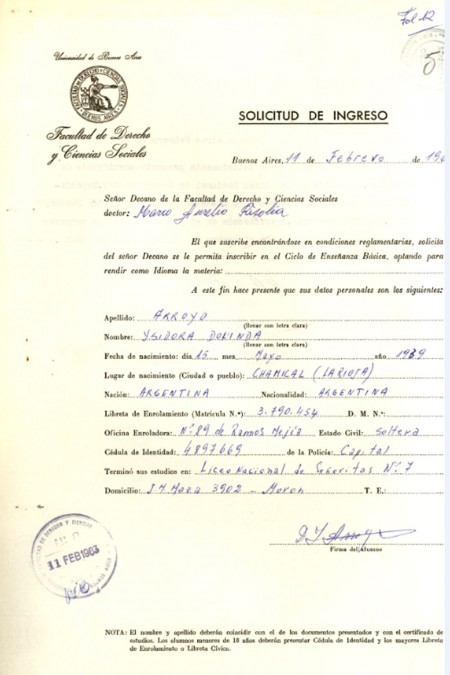 Fol 12
5
Universidad de Buenos Aires
Facultad de Derecho
y Ciencias Sociales
SOLICITUD DE INGRESO
Buenos Aires, 11 de Febrero de 196
Señor Decano de la Facultad de Derecho y Ciencias Sociales
doctor: Marco Aurelio Risolía
El que suscribe encontrándose en condiciones reglamentarias, solicita
del señor Decano se le permita inscribir en el Ciclo de Enseñanza Básica, optando para
rendir como Idioma la materia:
A este fin hace presente que sus datos personales son los siguientes:
Apellido: ARROYO
(llenar con letra clara)
Nombre: YSIDORA DOLINDA
(llenar con letra clara)
Fecha de nacimiento: día 15 mes Mayo año 1939
Lugar de nacimiento (Ciudad o pueblo): CHAMICAL (LA RIOJA)
Nación: ARGENTINA Nacionalidad: ARGENTINA
Libreta de Enrolamiento (Matrícula N.º): 3.790.454 D. M. N.º:
Oficina Enroladora: Nº 89 de Ramos Mejía Estado Civil: soltera
Cédula de Identidad: 4.897.669 de la Policía: Capital
Terminó sus estudios en: Liceo Nacional de Señoritas Nº 7
Domicilio: 3902 - Moron T. E.:
Firma del alumno
11 FEB 1963
NOTA: El nombre y apellido deberán coincidir con el de los documentos presentados y con el certificado de
estudios. Los alumnos menores de 18 años deberán presentar Cédula de Identidad y los mayores Libreta
de Enrolamiento o Libreta Cívica.